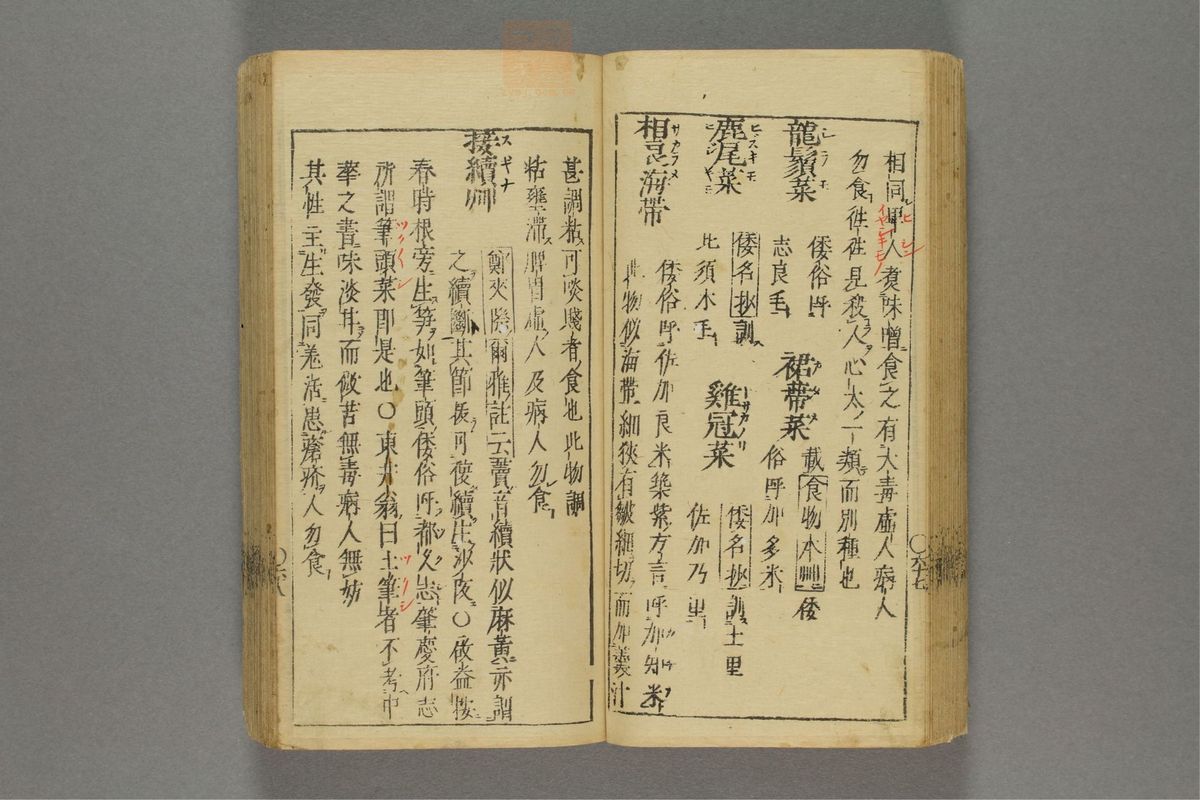 相同甲人煮味噌食之有大毒虛人病人
勿食往往是殺人心太一類而別種也
龍鬚菜 倭俗呼
志良毛
裙帶菜 載食物本艸倭
俗呼加多米
鹿尾菜 倭名抄訓
比須木毛
雞冠菜 倭名抄訓土里
佐加乃里
相良海帶 倭俗呼佐加良米築紫方言呼加知米
此物似海帶細狹有皺細切而加羹汁
甚謂粘可啖賤者食也此物調
粘壅滯脾胃虛人及病人勿食
接續艸 鄭夾漈爾雅註云藚音續狀似麻黃亦謂
之續斷其節拔可復續生沙阪〇啟益按
春時根旁生笋如筆頭倭俗呼都久志肇慶府志
所謂筆頭菜即是也〇東井翁曰土筆者不考中
華之書味淡甘而微苦無毒病人無妨
其性主生發同羌活患瘡疥人勿食
〇六十七
〇六八